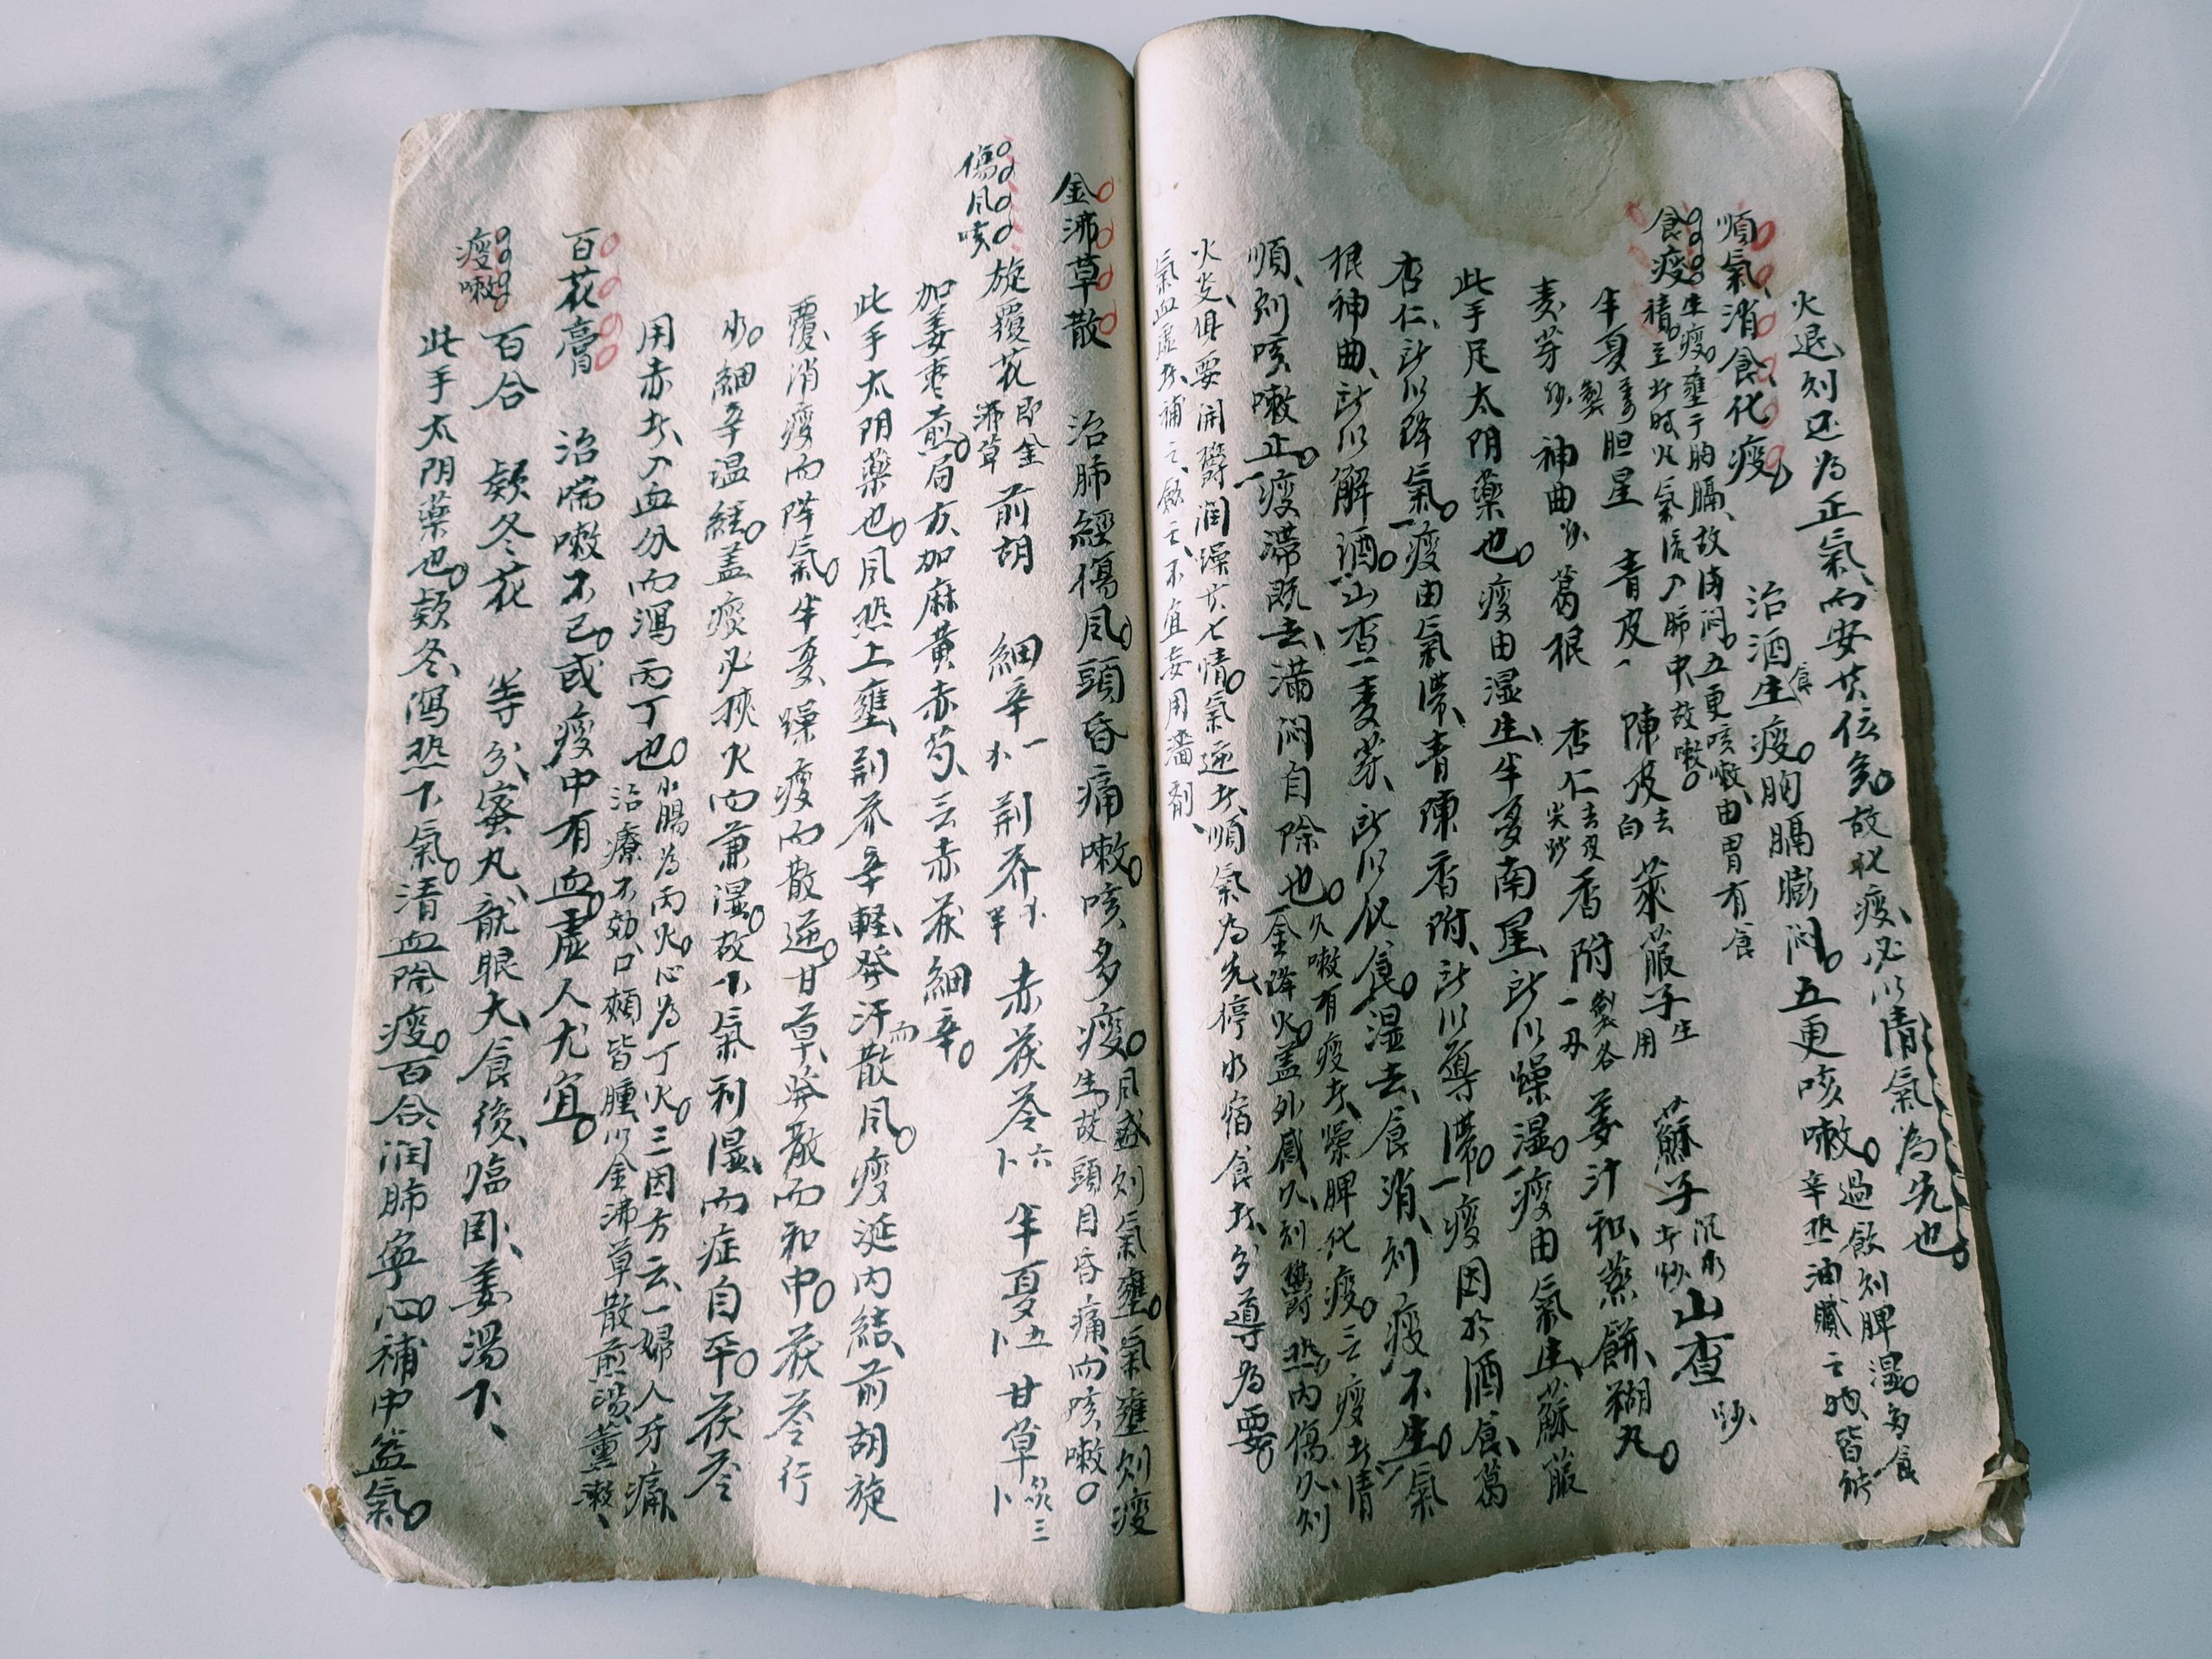 火退則还為正氣而安其位矣故化痰必以清氣為先也
順氣消食化痰 治酒食生痰胸膈膨闷五更咳嗽過飲則脾湿多食
辛热油膩之物皆能
食痰
生痰壅于胸膈故满闷五更咳嗽由胃有食
積至此時火氣流入肺中故嗽
半夏姜製 胆星 青皮 陳皮去白 萊菔子生用 蘇子沉水者炒 山查炒
麦芽炒 神曲炒 葛根 杏仁去皮尖炒 香附製各一两 姜汁和蒸餅糊丸
此手足太阴藥也痰由湿生半夏南星所以燥湿痰由氣生蘇菔
杏仁所以降氣痰由氣滞青陳香附所以導滞痰因於酒食葛
根神曲所以解酒山查麦芽所以化食湿去食消則痰不生氣
順則咳嗽止痰滞既去满闷自除也
久嗽有痰者燥脾化痰无痰者清
金降火盖外感久則鬱热内傷久則
火炎俱要開鬱润燥其七情氣逆者順氣為先停水宿食者分導為要
氣血虚者補之斂之不宜妄用濇剤
金沸草散 治肺經傷風頭昏痛嗽咳多痰風盛則氣壅氣壅則痰
生故頭目昏痛而咳嗽
傷風咳
旋覆花即金沸草 前胡 細辛一 荆芥半 赤茯苓六 半夏五 甘草炙三
加姜枣煎局方加麻黄赤芍无赤茯細辛
此手太阴藥也風热上壅荆芥辛輕發汗而散風痰涎内結前胡旋
覆消痰而降氣半夏燥痰而散逆甘草發散而和中茯苓行
水細辛温經盖痰必挾火而兼湿故下氣利湿而症自平茯苓
用赤者入血分而瀉丙丁也
小腸為丙火心為丁火三因方云一婦人牙痛
治療不効口頰皆腫以金沸草散煎湯薰漱
百花膏 治喘嗽不已或痰中有血虚人尤宜
痰嗽
百合 款冬花 等分蜜丸龍眼大食後臨卧姜湯下
此手太阴藥也款冬瀉热下氣清血除痰百合润肺寧心補中益氣